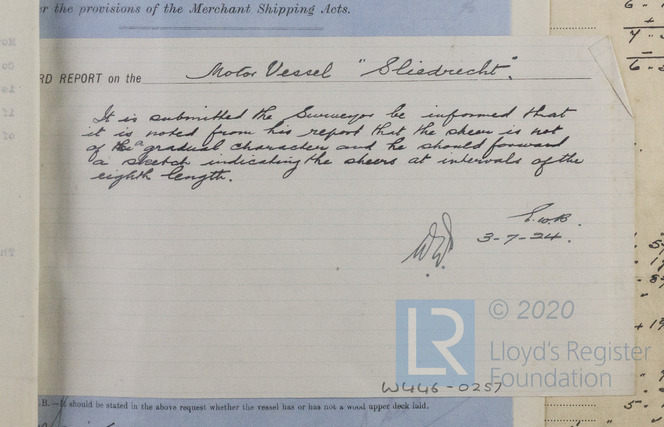 r the provisions of the Merchant Shipping Acts.
RD REPORT on the Motor Vessel "Sliedrecht".
It is submitted the Surveyor be informed that
it is noted from his report that the sheer is not
of a gradual character and he should forward
a sketch indicating the sheers at intervals of the
eighth length.
E.W.B.
3-7-24.
© 2020
LR
Lloyd's Register
Foundation
W446-0257
.B.—It should be stated in the above request whether the vessel has or has not a wood upper deck laid.